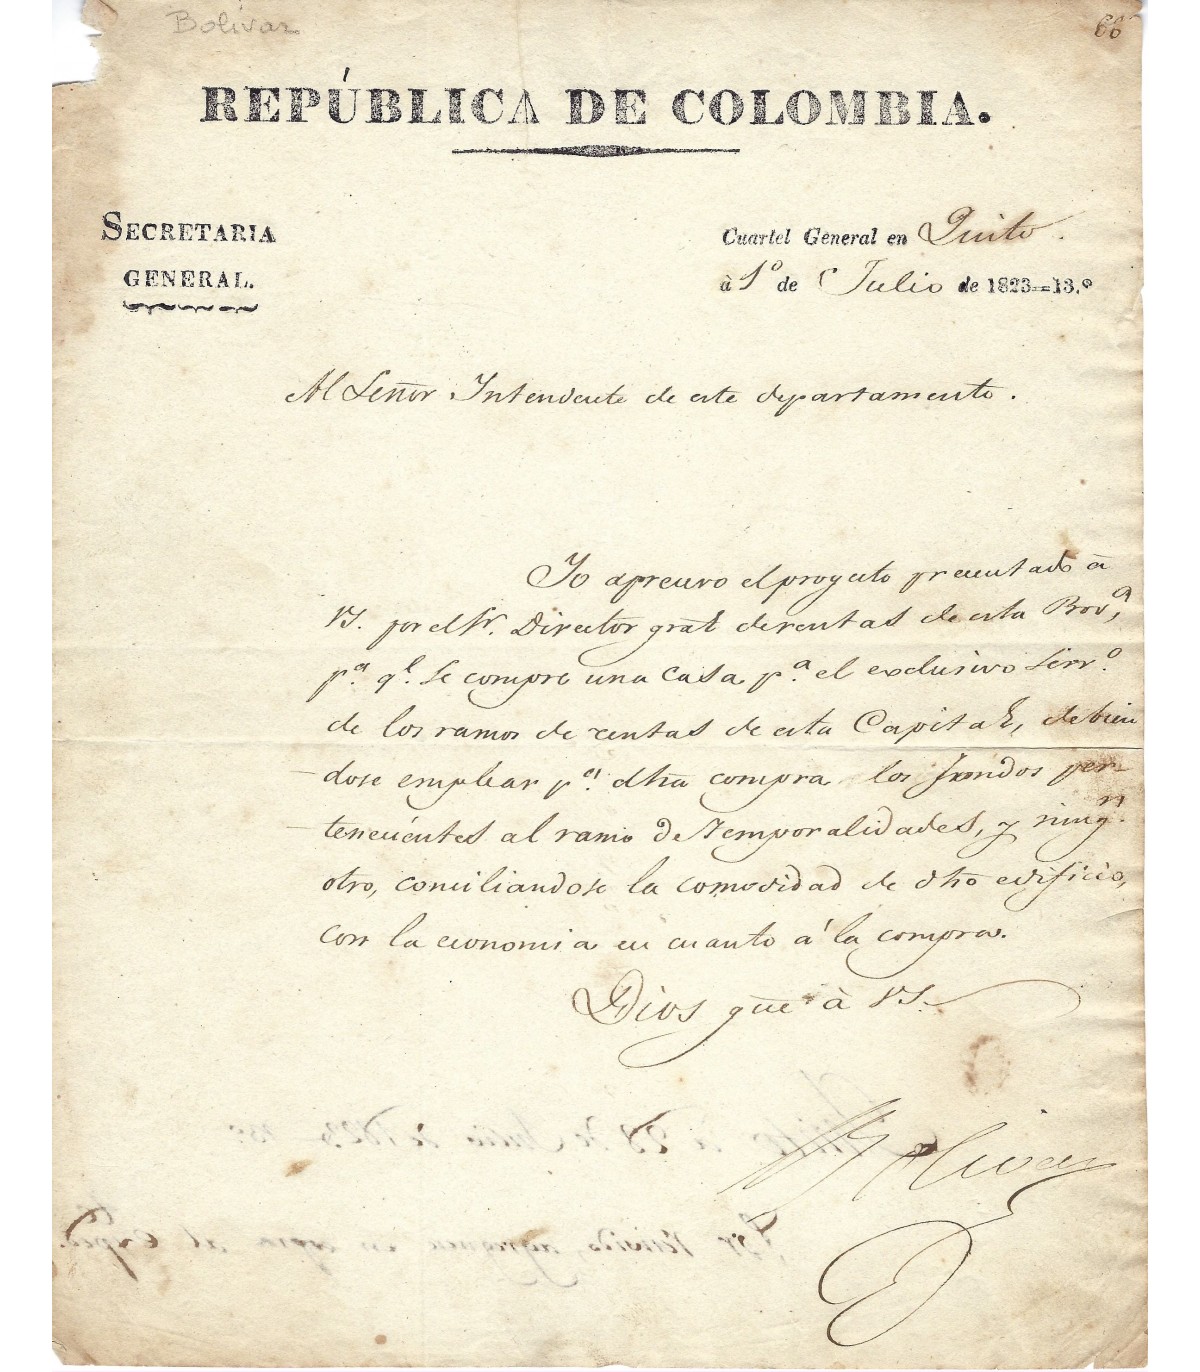 Bolivar
66
REPÚBLICA DE COLOMBIA.
SECRETARIA
GENERAL.
Cuartel General en Quito.
à 1º de Julio de 1823=13.º
Al Señor Intendente de este departamento.
Yo apruevo el proyecto presentado à
VS. por el Sr. Director gral de rentas de esta Prov.ª,
p.ª q.e se compre una casa p.ª el exclusivo serv.º
de los ramos de rentas de esta Capital, debien
dose emplear p.ª dha compra los fondos per-
tenecientes al ramo de Temporalidades, y ning.n
otro, conciliandose la comodidad de dho edificio,
con la economia en cuanto á la compra.
Dios gũe à VS.
Bolivar
Quito à 29 de Julio de 1823
recivido, agreguese en copia al Exped.